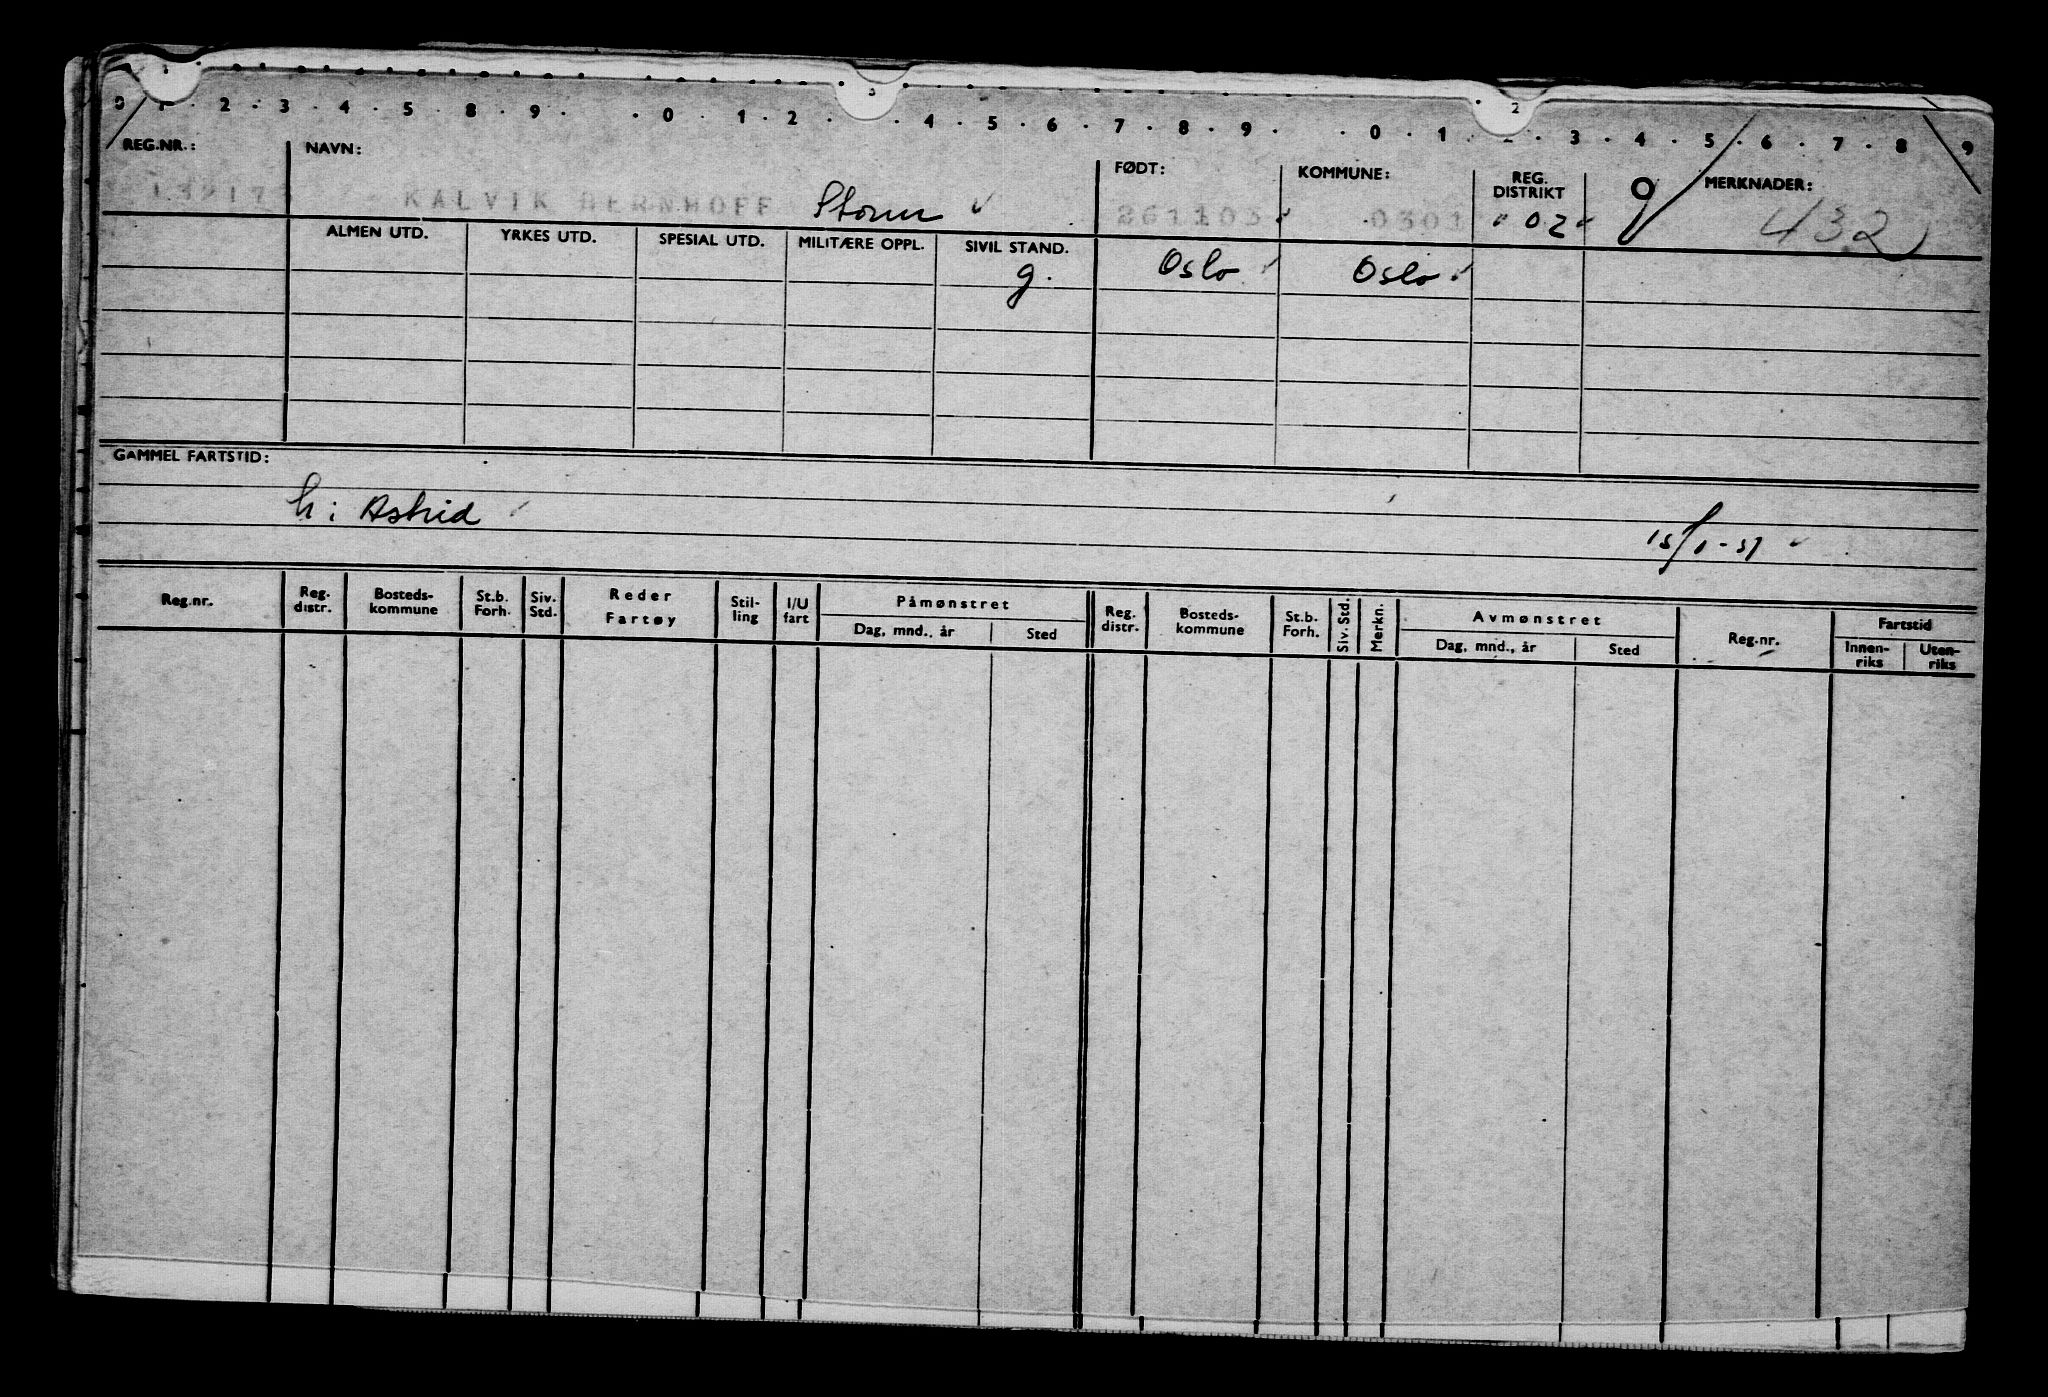 0 1 2 3 4 5 8 9 0 1 2 4 5 6 7 8 9 0 1 2 3 4 5 6 7 8 9
REG.NR.: NAVN: FØDT: KOMMUNE: REG. DISTRIKT MERKNADER:
KALVIK BERNHOFF Storm 261103 0301 02 9 432
ALMEN UTD. YRKES UTD. SPESIAL UTD. MILITÆRE OPPL. SIVIL STAND.
g. Oslo Oslo
GAMMEL FARTSTID:
h: Astrid
15/1-51
Reg.nr. Reg. distr. Bosteds-kommune St.b. Forh. Siv. Std. Reder Fartøy Stil-ling I/U fart Påmønstret Reg. distr. Bosteds-kommune St.b. Forh. Siv. Std. Merkn. Avmønstret Reg.nr. Fartstid
Dag, mnd., år Sted Dag, mnd., år Sted Innen-riks Uten-riks